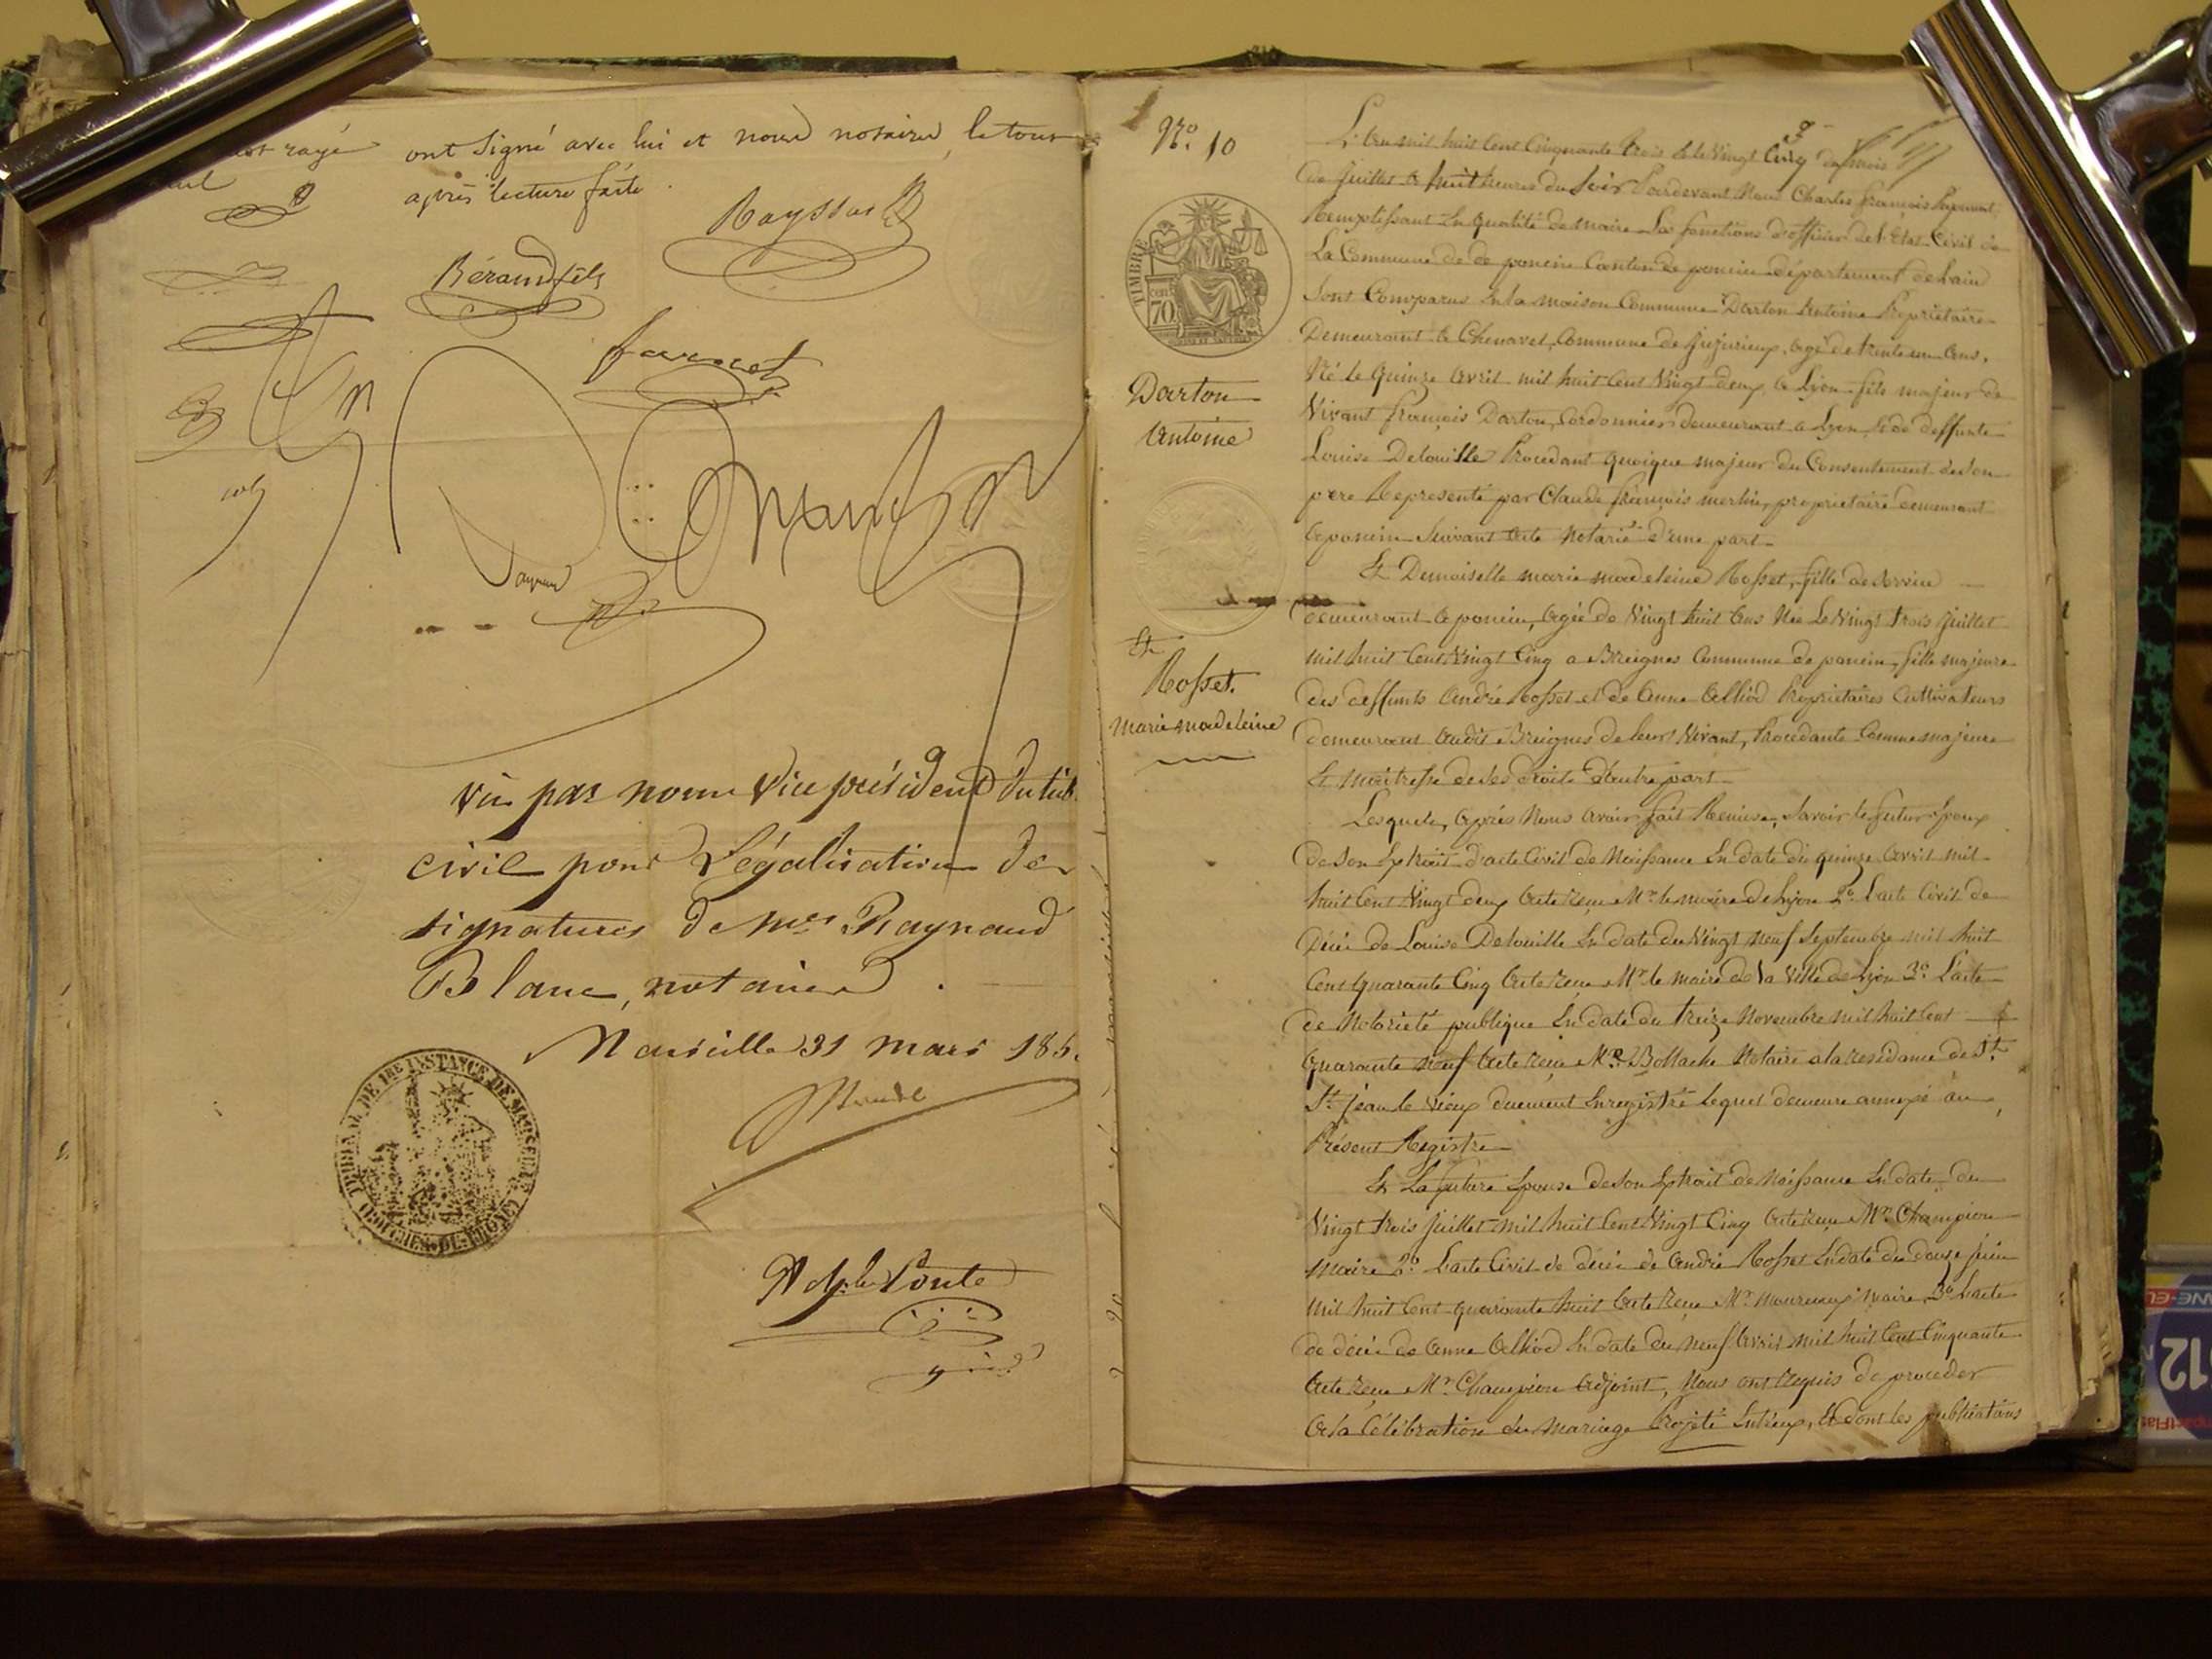 est rayé
ont signé avec lui et nous notaires, le tout
après lecture faite.
Béraud fils
vu par nous vice président du trib.
civil pour Légalisation des
signatures de Mes Raynaud
Blanc, notaires.
Marseille 31 mars 185
TRIBUNAL DE 1RE INSTANCE DE MARSEILLE
Nº. 10
TIMBRE
70 cent
Darton
Antoine
Et
Rosset.
marie madeleine
L'an mil huit cent cinquante trois et le vingt cinq du mois
de juillet à huit heures du soir Pardevant Nous Charles françois
Remplissant en qualité de maire les fonctions d'officier de l'état civil de
La Commune de de poncin Canton de poncin département de Lain
Sont Comparus en la maison Commune Darton Antoine Propriétaire
Demeurant à Chenavel, Commune de jujurieux, agé de trente un ans,
Né le quinze avril mil huit cent vingt deux à Lyon fils majeur de
Vivant françois Darton, Cordonnier demeurant à Lyon, & de deffunte
Louise Delouille Procédant quoique majeur du Consentement de son
père Représenté par Claude françois merlin, propriétaire demeurant
à poncin Suivant acte Notarié d'une part
Et Demoiselle marie madeleine Rosset, fille de service
demeurant à poncin, agée de vingt huit ans Née Le vingt trois juillet
mil huit cent vingt cinq a Breignes Commune de poncin, fille majeure
des deffunts André Rosset et de Anne Alliod Propriétaires cultivateurs
demeurant audit Breignes de leurs vivant, Procédante Comme majeure
Et maîtresse de ses droits d'autre part
Lesquels, après Nous avoir fait Remise, Savoir le futur époux
de son Extrait d'acte Civil de Naissance En date du quinze avril mil
huit cent vingt deux acte reçu Mr le maire de Lyon 2º Lacte Civil de
Décès de Louise Delouille En date du vingt neuf Septembre mil huit
Cent quarante cinq acte reçu Mr le maire de la ville de Lyon 3º Lacte
de Notoriété publique En date du treize Novembre mil huit cent
quarante neuf acte reçu Mr Notaire a la résidance de St
St jean le vieux duement Enregistré lequel demeure annexé au
Présent Registre
Et La future Epouse de son Extrait de Naissance En date du
vingt trois juillet mil huit cent vingt cinq acte reçu Mr Champion
maire 2º Lacte Civil de décès de André Rosset En date du douze juin
mil huit cent quarante huit acte reçu Mr maire, 3º Lacte
de décès de Anne Alliod En date du neuf avril mil huit cent cinquante
acte reçu Mr Champion Adjoint, Nous ont requis de proceder
à la Célébration du mariage Projeté Entreux, & dont les publications
12